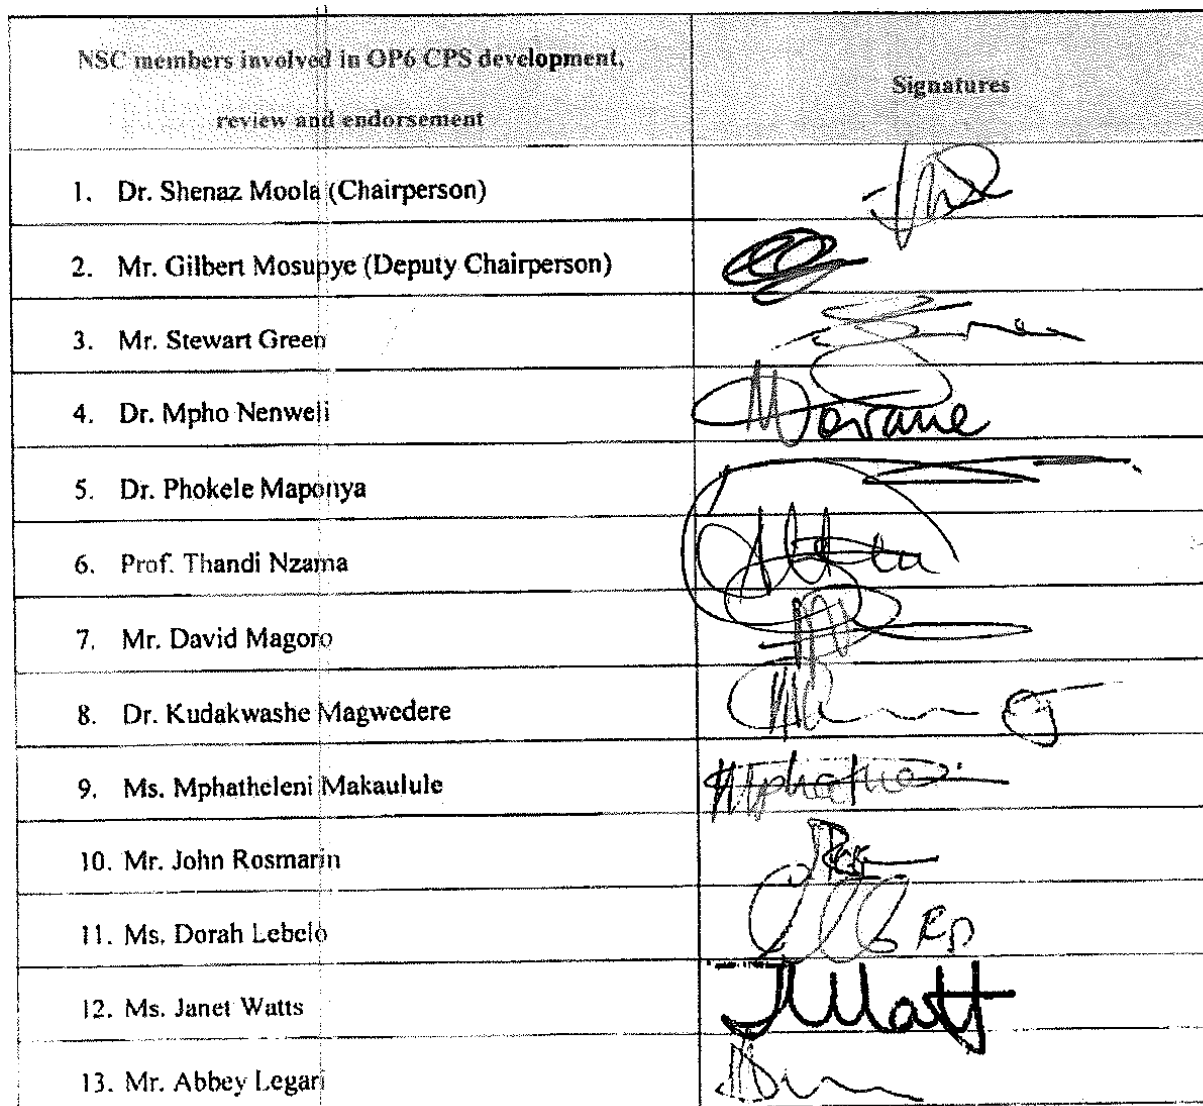 NSC members involved in OP6 CPS development,
review and endorsement
Signatures
1. Dr. Shenaz Moola (Chairperson)
2. Mr. Gilbert Mosupye (Deputy Chairperson)
3. Mr. Stewart Green
4. Dr. Mpho Nenweli
5. Dr. Phokele Maponya
6. Prof. Thandi Nzama
7. Mr. David Magoro
8. Dr. Kudakwashe Magwedere
9. Ms. Mphatheleni Makaulule
10. Mr. John Rosmarin
11. Ms. Dorah Lebelo
12. Ms. Janet Watts
13. Mr. Abbey Legari